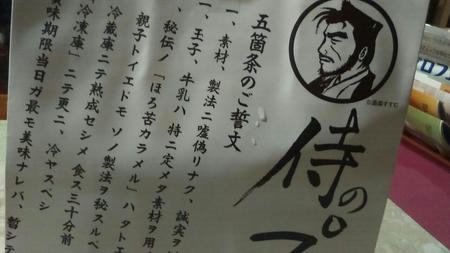 侍のプ
五箇条のご誓文
一、素材、製法ニ嘘偽リナク、誠実ヲ
一、玉子、牛乳ハ 特ニ定メタ素材ヲ用
、秘伝ノ「ほろ苦カラメル」ハ タトエ
親子トイエドモ ソノ製法ヲ秘スルベ
冷蔵庫ニテ熟成セシメ 食ス三十分前
冷凍庫」ニテ更ニ、冷ヤスベシ
美味期限当日ガ最モ美味ナレバ、暫シテ